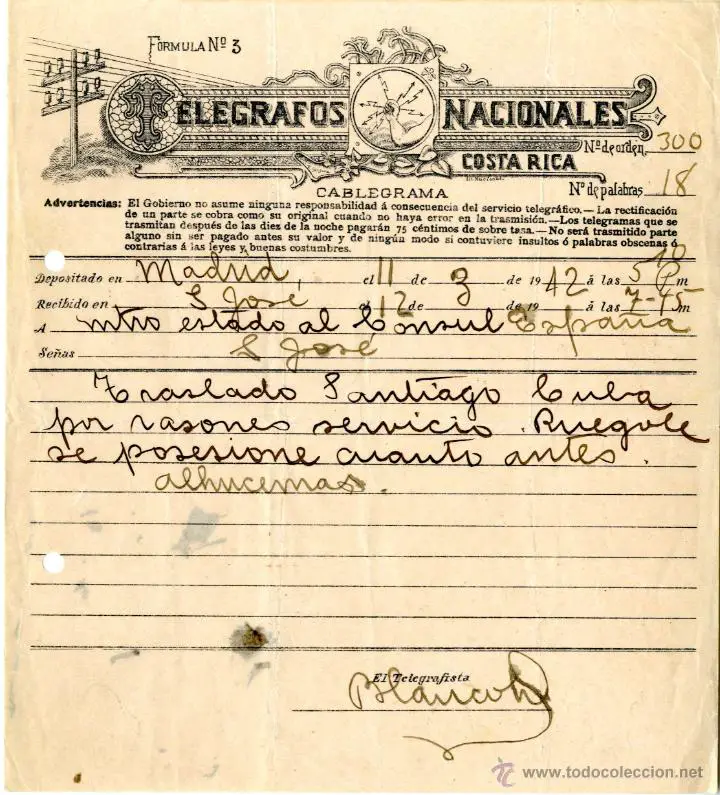 FÓRMULA Nº 3
TELEGRAFOS NACIONALES
COSTA RICA
Nº de orden 300
CABLEGRAMA
Nº de palabras 18
Advertencias: El Gobierno no asume ninguna responsabilidad á consecuencia del servicio telegráfico.—La rectificación
de un parte se cobra como su original cuando no haya error en la trasmisión.—Los telegramas que se
trasmitan después de las diez de la noche pagarán 75 céntimos de sobre tasa.—No será trasmitido parte
alguno sin ser pagado antes su valor y de ningún modo si contuviere insultos ó palabras obscenas ó
contrarias á las leyes y buenas costumbres.
Depositado en Madrid, el 11 de 3 de 1912 á las 5 10 P m
Recibido en S José el 12 de de 19 á las 7-45 m
A mtro estado al Consul España
Señas S José
Traslado Santiago Cuba
por rasones servicio. Ruegole
se posesione cuanto antes.
alhucemas.
El Telegrafista
www.todocoleccion.net